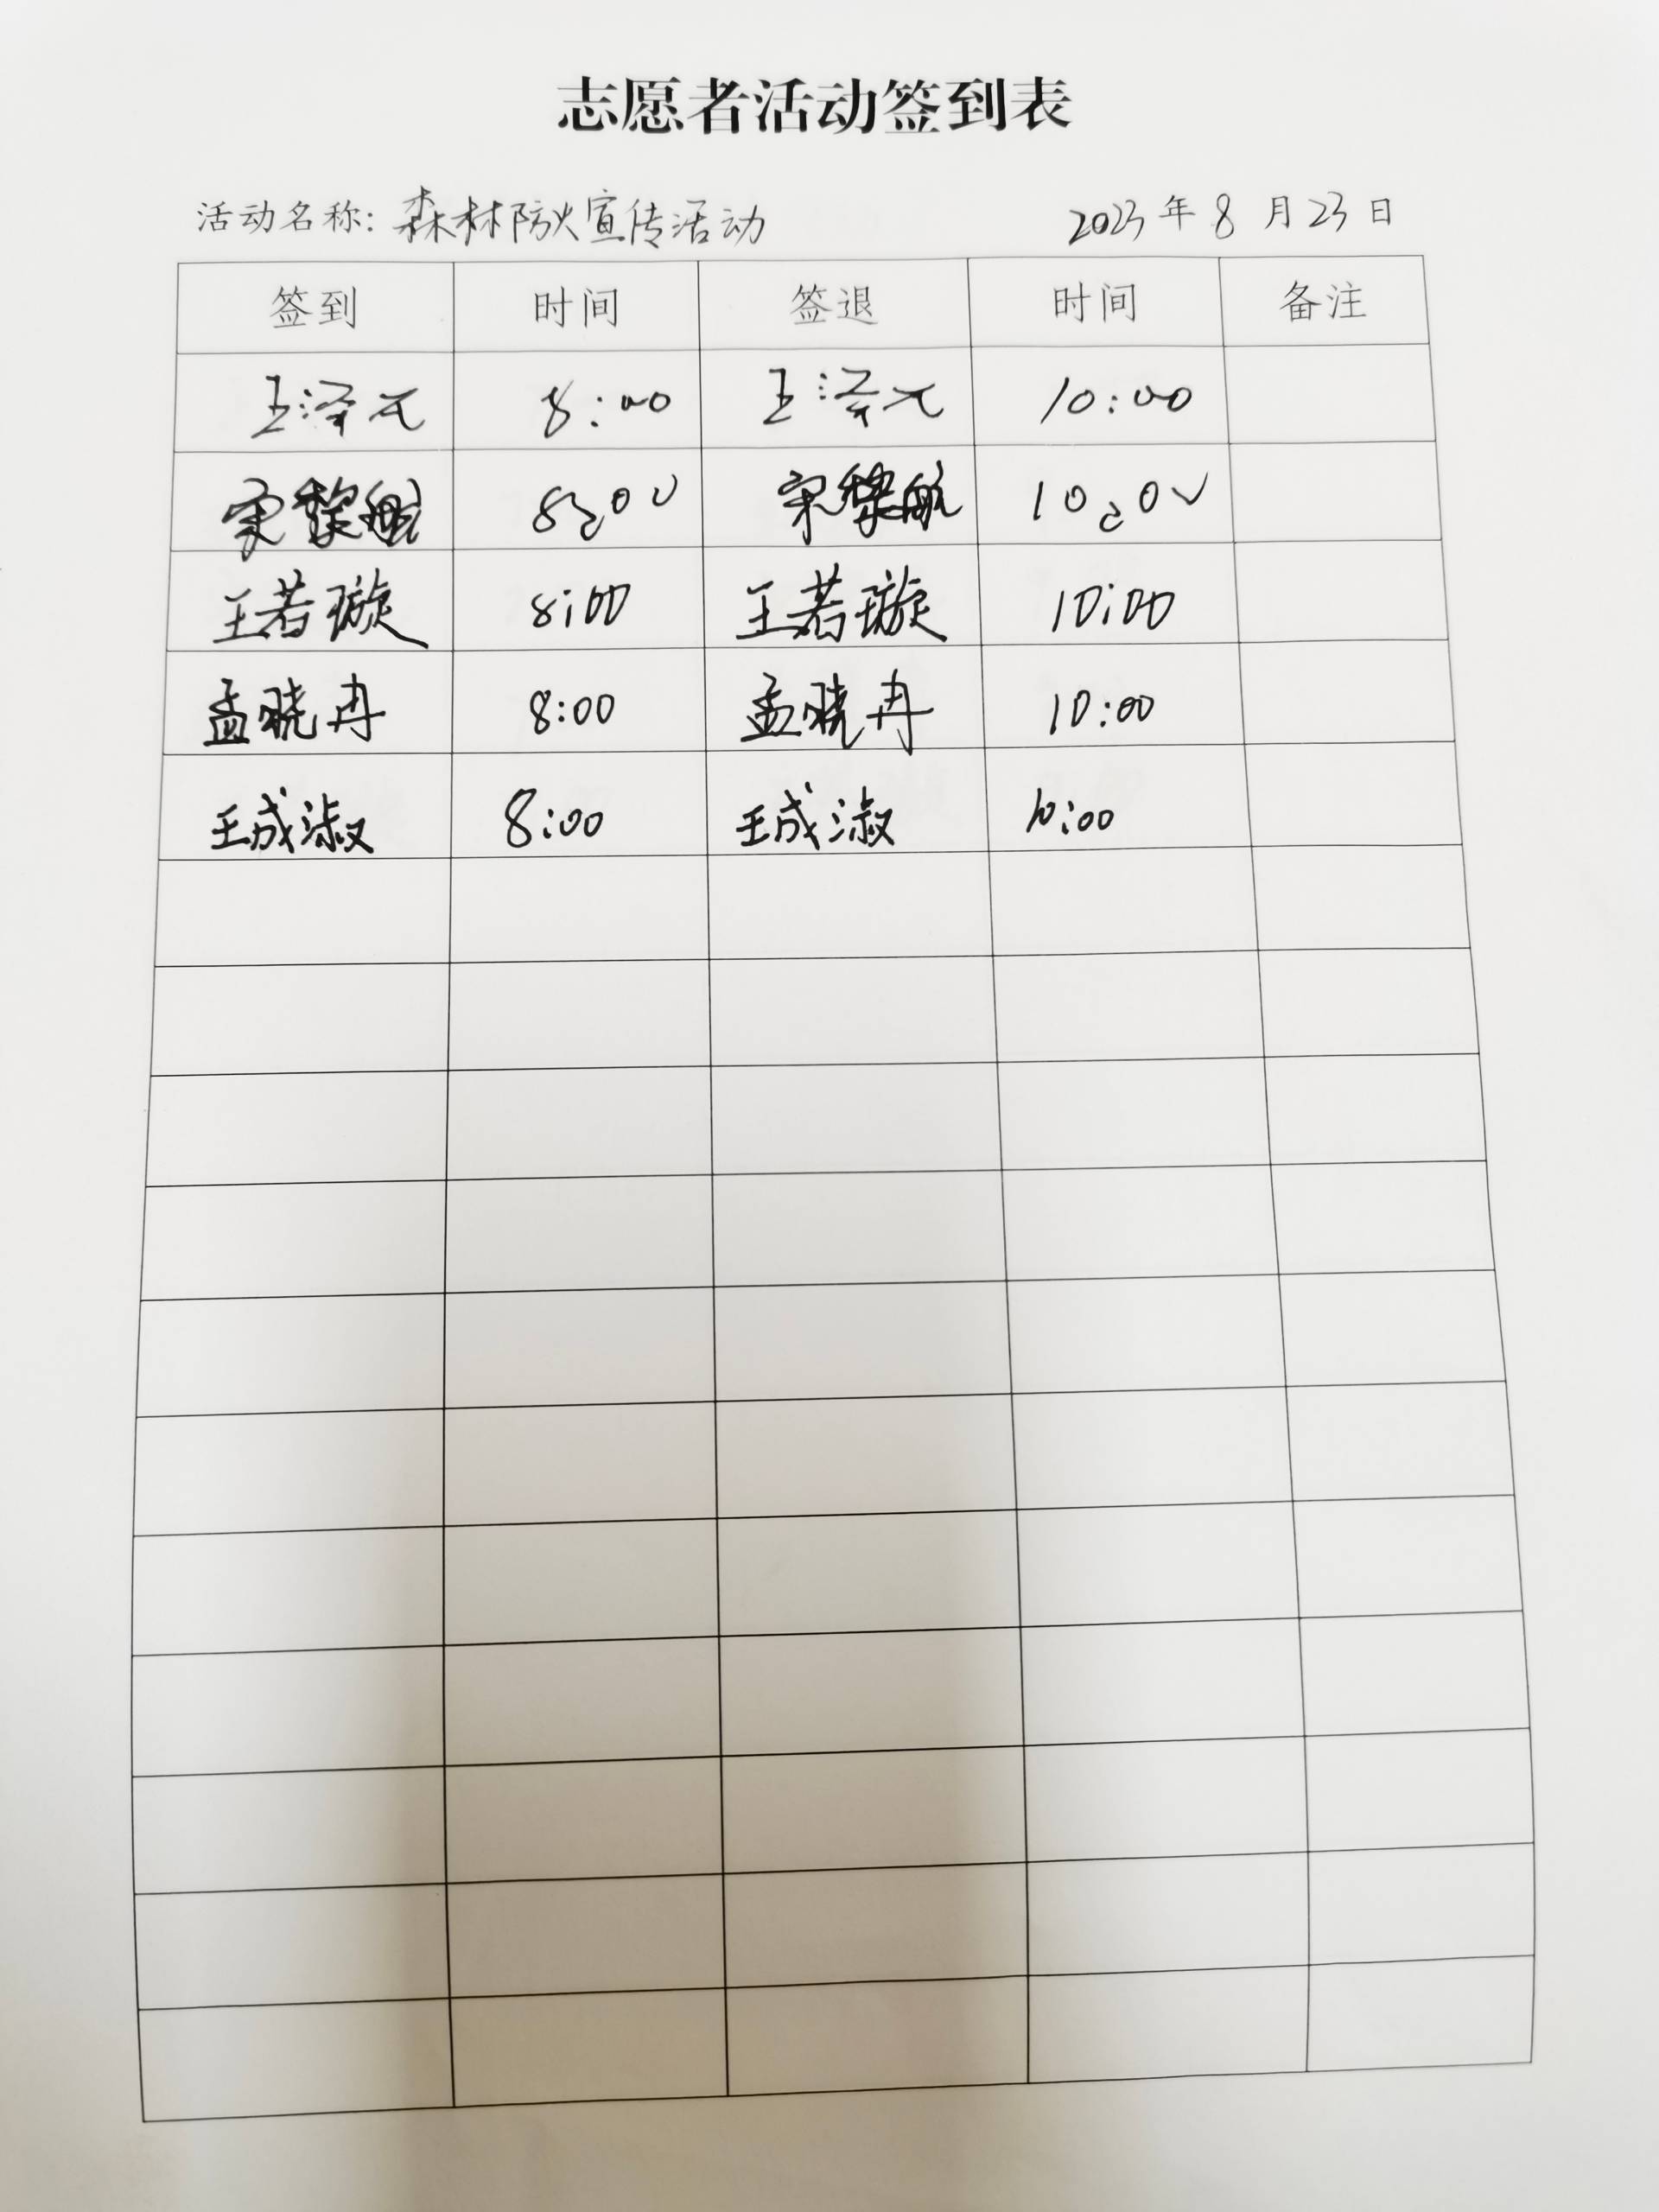 志愿者活动签到表
活动名称: 森林防火宣传活动 2023年8月23日
签到 时间 签退 时间 备注
王泽元 8:00 王泽元 10:00
宋黎航 8:00 宋黎航 10:00
王若璇 8:00 王若璇 10:00
孟晓冉 8:00 孟晓冉 10:00
王成淑 8:00 王成淑 10:00